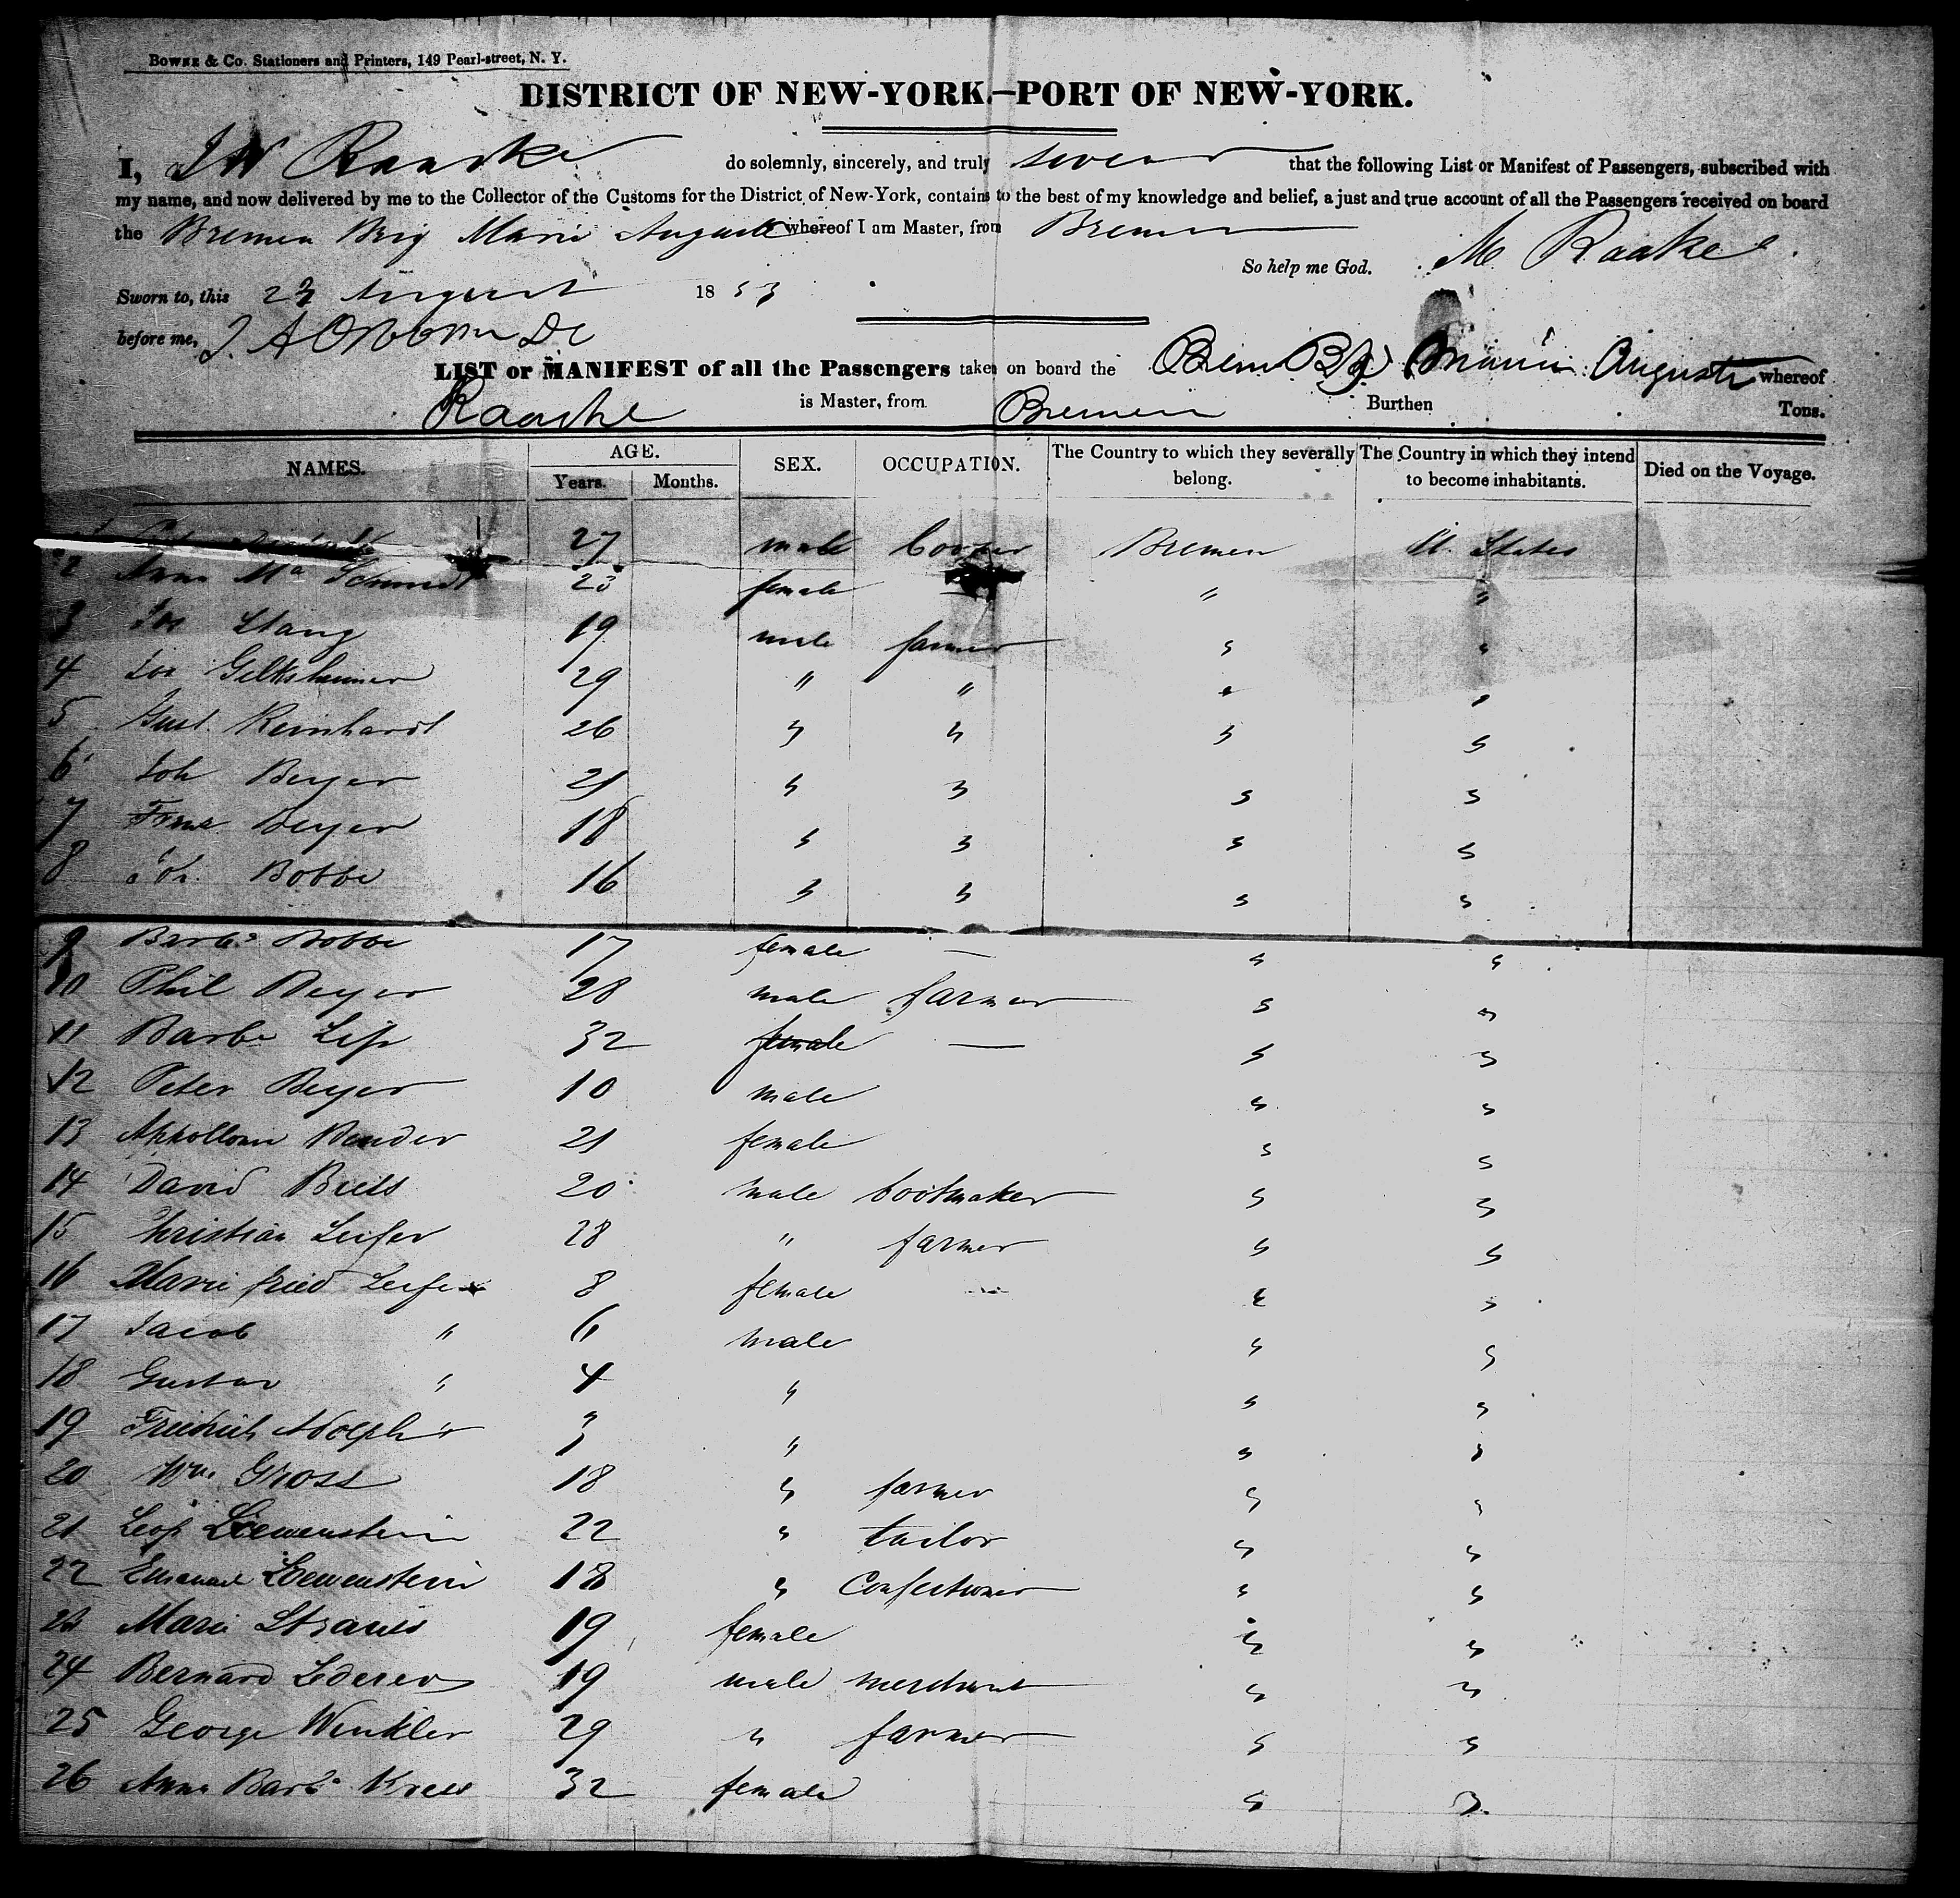 BOWNE & Co. Stationers and Printers, 149 Pearl-street, N. Y.
DISTRICT OF NEW-YORK.—PORT OF NEW-YORK.
I, J W Raaske do solemnly, sincerely, and truly swear that the following List or Manifest of Passengers, subscribed with
my name, and now delivered by me to the Collector of the Customs for the District of New-York, contains to the best of my knowledge and belief, a just and true account of all the Passengers received on board
the Bremen Brig Marie Auguste whereof I am Master, from Bremen
So help me God. Raaske
Sworn to, this 23 August 1853
before me,
LIST or MANIFEST of all the Passengers taken on board the Brem Brg Marie Auguste whereof
Raaske is Master, from Bremen Burthen Tons.
NAMES. AGE. SEX. OCCUPATION. The Country to which they severally belong. The Country in which they intend to become inhabitants. Died on the Voyage.
Years. Months.
27 male Cooper Bremen U. States
2 Anna Ma Schmidt 23 female — " "
3 Jos Stang 19 male farmer " "
4 Jos 29 " " " "
5 Gust. Reinhardt 26 " " " "
6 Joh Beyer 21 " " " "
7 Beyer 18 " " " "
8 Joh. Bobbe 16 " " " "
9 Barba Bobbe 17 female — " "
10 Phil Beyer 28 male farmer " "
11 Barba 32 female — " "
12 Peter Beyer 10 male " "
13 Appollonia Bender 21 female " "
14 David 20 male bootmaker " "
15 Christian Leifer 28 " farmer " "
16 Marie fried Leifer 8 female " "
17 Jacob " 6 male " "
18 Gustav " 4 " " "
19 Friedrich Adolph " 3 " " "
20 Wm Gross 18 " farmer " "
21 Leop Loewenstein 22 " tailor " "
22 Emanuel Loewenstein 18 " Confectioner " "
23 Marie Strauss 19 female " "
24 Bernard Lederer 19 male merchant " "
25 George Winkler 29 " farmer " "
26 Anna Barba Kress 32 female " "